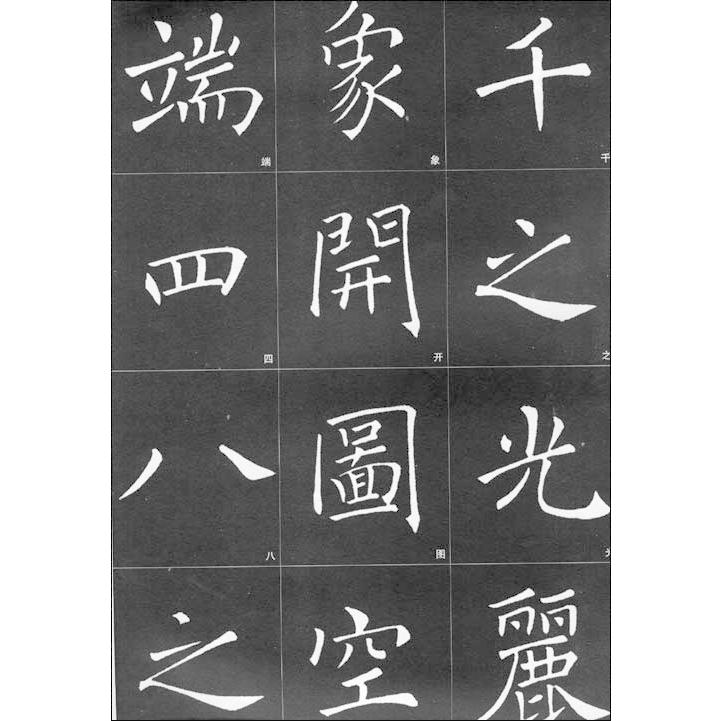 千之光麗
象開圖空
端四八之
千
之
象
开
图
端
四
八